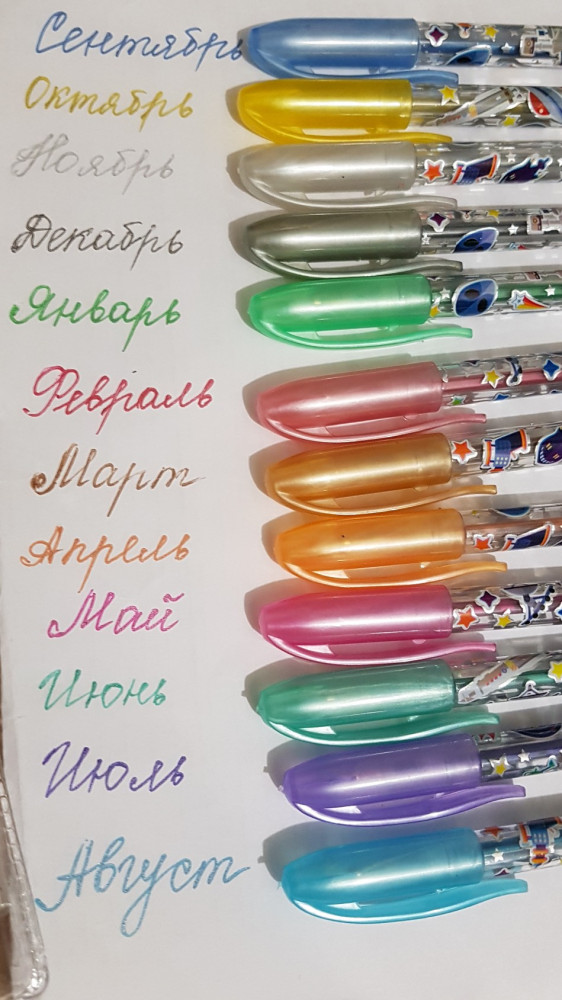 Сентябрь
Октябрь
Ноябрь
Декабрь
Январь
Февраль
Март
Апрель
Май
Июнь
Июль
Август